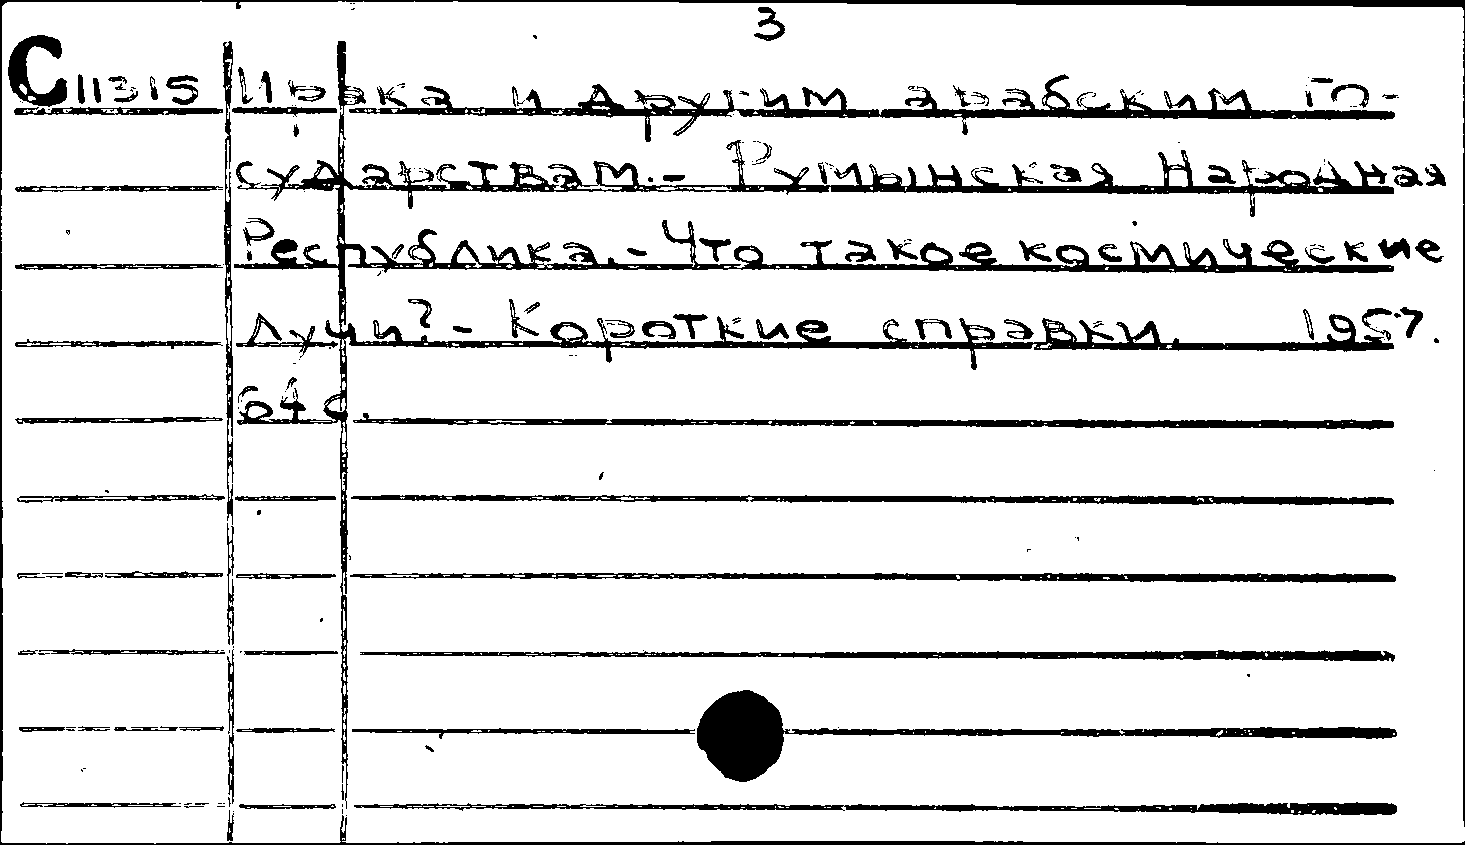 3
С11315 Ирака и другим арабским го-
сударствам.- Румынская Народная
Республика.- Что такое космические
лучи? - Короткие справки. 1957.
64 с.